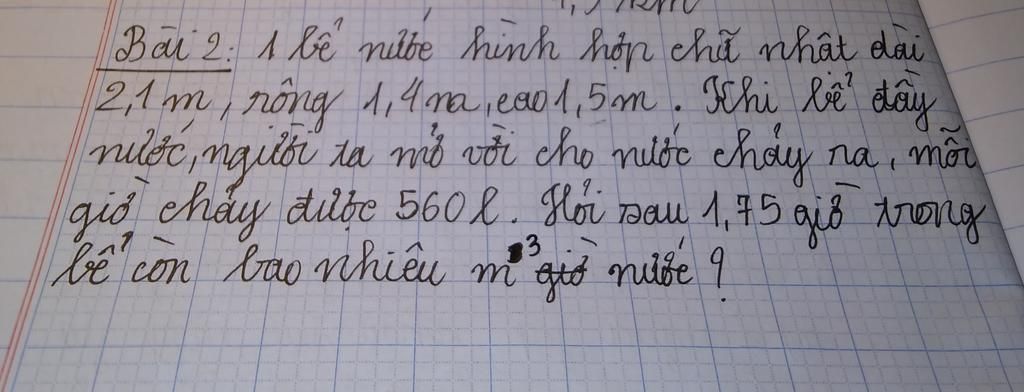 Bài 2: 1 bể nước hình hộp chữ nhật dài
2,1m, rộng 1,4m, cao 1,5m. Khi bể đầy
nước, người ta mở vòi cho nước chảy ra, mỗi
giờ chảy được 560l. Hỏi sau 1,75 giờ trong
bể còn bao nhiêu m³ giờ nước?